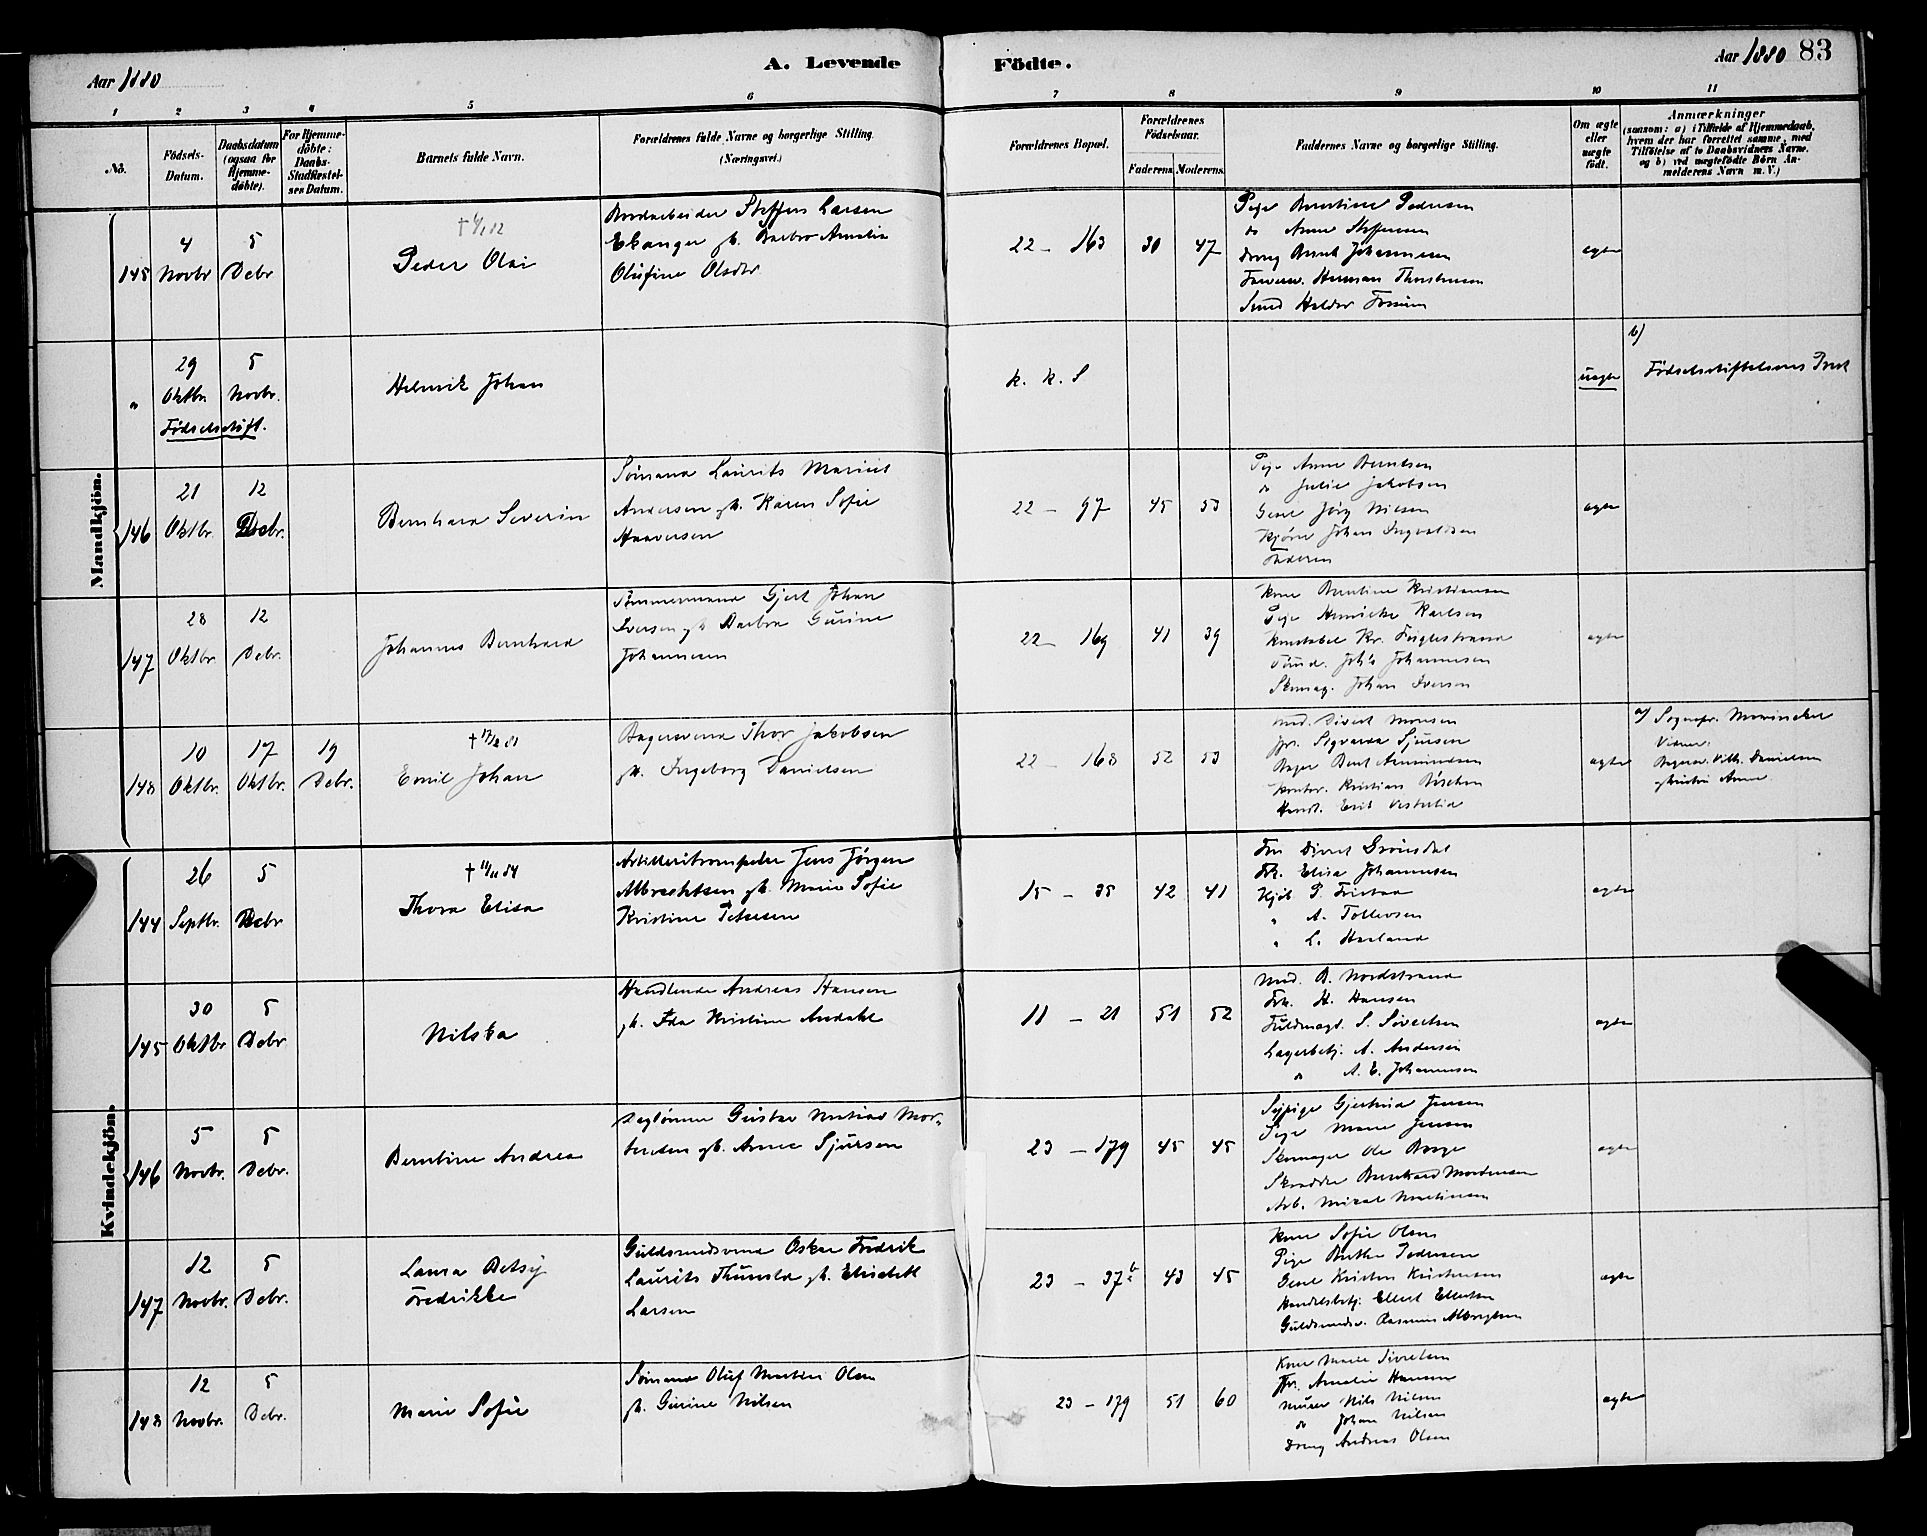 Aar 1880
A. Levende
Födte.
Aar 1880 83
1 2 3 4 5 6 7 8 9 10 11
No.
Födsels-
Datum.
Daabsdatum
(ogsaa for
Hjemme-
döbte).
For Hjemme-
döbte:
Daabs-
Stadfæstel-
ses Datum.
Barnets fulde Navn.
Forældrenes fulde Navne og borgerlige Stilling.
(Næringsvei.)
Forældrenes Bopæl.
Forældrenes
Födselsaar.
Faderens Moderens.
Faddernes Navne og borgerlige Stilling.
Om ægte
eller
uægte
födt.
Anmærkninger
(saasom: a) i Tilfælde af Hjemmedaab,
hvem der har forrettet samme, med
Tilföielse af to Daabsvidners Navne,
og b) ved uægtefödte Börn An-
melderens Navn m. V.)
Mandkjön.
145
4
Novbr
5
Debr
Peder Olai
Steffen Larsen
Ekanger gh. Barbro Amalia
Olufine Olsdtr
22 - 163
30
47
Pige Berntine Pedersen
do Anne Steffensen
Dreng Bernt Johannesen
Herman Thorstensen
Smed Halder
ægte
"
29
Oktbr.
Födselsstift.
5
Novbr.
Henrik Johan
k. k. S
uægte
b)
Födselsstiftelsens Prest
146
21
Oktbr.
12
Decbr.
Bernhard Severin
Sömand Laurits Marius
Andersen gh. Karen Sofie
Haaversen
22 - 97
45
53
Pige Anne Berntsen
do Julie Jakobsen
Nilsen
Johan Ingvaldsen
Faderen
ægte
147
28
Oktbr.
12
Debr.
Johannes Bernhard
Tömmermand Gjert Johan
Iversen gh. Barbra Gurine
Johannesen
22 - 169
41
39
Kone Berntine Kristiansen
Pige Henrikke Karlsen
Konstabel Kr. Fuglestrand
Johs Johannesen
Skomag. Johan Iversen
ægte
148
10
Oktbr.
17
Oktbr.
19
Debr.
Emil Johan
Bagersvend Thor Jakobsen
gh. Ingeborg Danielsen
22 - 168
52
53
Mad. Sivert Monsen
Jfr. Sigvarda Sjursen
Bager Bent Amundsen
Kontor. Kristian
Erik
ægte
a) Sognepr.
Vidner:
Vilh. Danielsen
Anna
Kvindekjön.
144
26
Septbr.
5
Decbr
Thora Elisa
Artilleritrompeter Jens Jörgen
Albrechtsen gh. Marie Sofie
Kristine Petersen
15 - 35
42
41
Fru Sivert Grönsdal
Frk. Elisa Johannesen
Kjöb. P.
" A. Tollevsen
" L. Haaland
ægte
145
30
Oktbr
5
Debr
Nilska
Handlende Andreas Hansen
gh. Ida Kristine Andahl
11 - 21
51
52
Mad. B. Nordstrand
Frk. H. Hansen
Fuldmægt. S. Sivertsen
Lagerbetj. A. Andersen
do A. E. Johannesen
ægte
146
5
Novbr.
5
Debr.
Berntine Andrea
Daglönner Gustav Matias Mor-
tensen gh. Anne Sjursen
23 - 179
45
45
Sypige Gjertrud Jensen
Pige Marie Jensen
Skomager Ole Borge
Skrædder Bernhard Mortensen
Arb. Mikal Martinsen
ægte
147
12
Novbr.
5
Debr.
Laura Betsy
Fredrikke
Guldsmedsvend Oskar Fredrik
Laurits Thunold gh. Elisabeth
Larsen
23 - 37b
43
45
Kone Sofie Olsen
Pige Berthe Pedersen
Kristen Kristensen
Handelsbetj. Ellert Ellertsen
Guldsmedsv. Rasmus Albregtsen
ægte
148
12
Novbr.
5
Debr.
Marie Sofie
Sömand Oluf Martin Olsen
gh. Gurine Nilsen
23 - 179
51
60
Kone Marie Sivertsen
Jfr. Amalie Hansen
Murer Nils Nilsen
do Johan Nilsen
Dreng Andreas Olsen
ægte